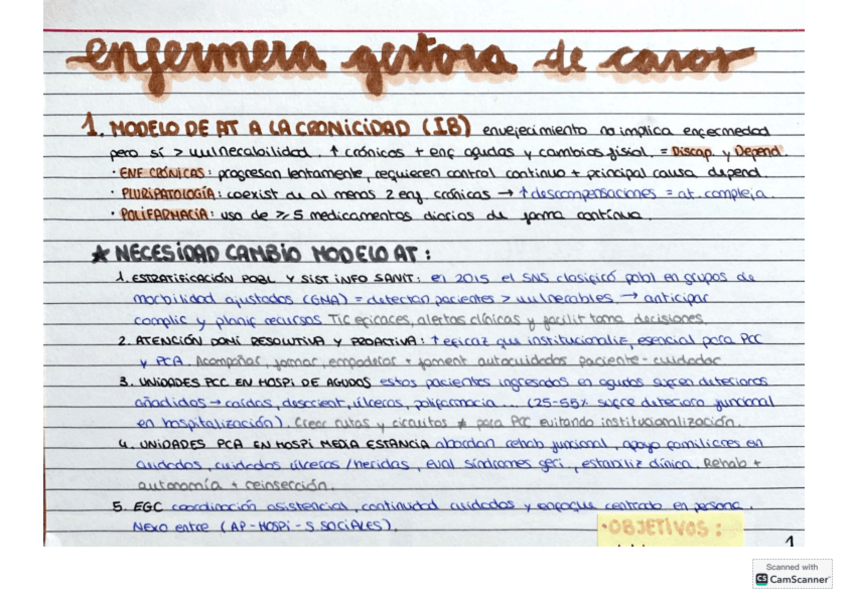 enfermera gestora de casos
1. MODELO DE AT A LA CRONICIDAD (IB) envejecimiento no implica enfermedad
pero sí > vulnerabilidad. ↑ crónicos + enf agudas y cambios fisiol. = Discap. y Depend.
· ENF CRÓNICAS: progresan lentamente, requieren control continuo + principal causa depend.
· PLURIPATOLOGÍA: coexist de al menos 2 enf crónicas → ↑ descompensaciones = at. compleja.
· POLIFARMACIA: uso de ≥ 5 medicamentos diarios de forma continua.
★ NECESIDAD CAMBIO MODELO AT:
1. ESTRATIFICACIÓN POBL Y SIST INFO SANIT: en 2015 el SNS clasificó pobl en grupos de
morbilidad ajustados (GMA) = detectan pacientes > vulnerables. → anticipar
complic y planif recursos TIC eficaces, alertas clínicas y facilit toma decisiones.
2. ATENCIÓN DOMI RESOLUTIVA Y PROACTIVA: ↑ eficaz que institucionaliz, esencial para PCC
y PCA. Acompañar, formar, empoderar + foment autocuidados paciente-cuidador
3. UNIDADES PCC EN HOSPI DE AGUDOS estos pacientes ingresados en agudos sufren deterioros
añadidos → caídas, desorient, úlceras, polifarmacia... (25-55% sufre deterioro funcional
en hospitalización). Crear rutas y circuitos ≠ para PCC evitando institucionalización.
4. UNIDADES PCA EN HOSPI MEDIA ESTANCIA abordan rehab funcional, apoyo familiares en
cuidados, cuidados úlceras/heridas, eval síndromes geri, estabiliz clínica. Rehab +
autonomía + reinserción.
5. EGC coordinación asistencial, continuidad cuidados y enfoque centrado en persona.
Nexo entre (AP-HOSPI-S SOCIALES).
· OBJETIVOS:
1
Scanned with
CS CamScanner